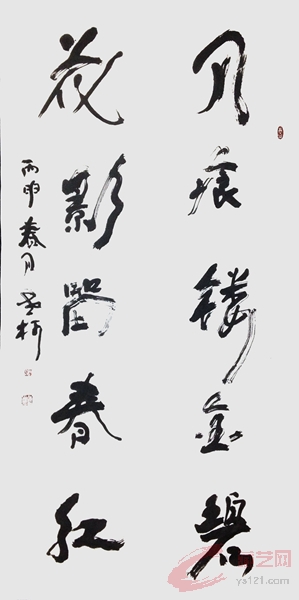 月痕镂金碧
花影 春红
丙申春月
艺网
ys121.com